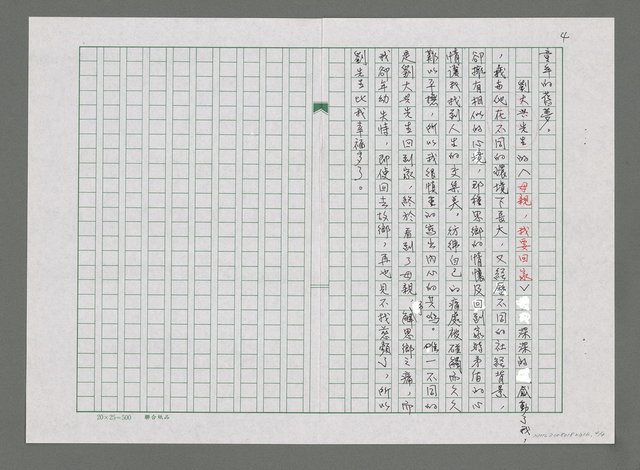 4
童年的舊夢。
劉大興先生的〈母親，我要回家〉深深的感動了我，
，我與他在不同的環境下長大，又經歷不同的社經背景，
卻擁有相似的心境，那種思鄉的情懷及回到家時矛盾的心
情讓我找到人生的交集點，彷彿自己的痛處被碰觸而久久
難以平穩，所以我很慎重的寫出內心的共鳴。唯一不同的
是劉大興先生回到家，終於看到了母親，解思鄉之痛，而
我卻年幼失恃，即使回去故鄉，再也見不找慈顏了，所以
劉先生比我幸福多了。
20×25=500 聯合紙品